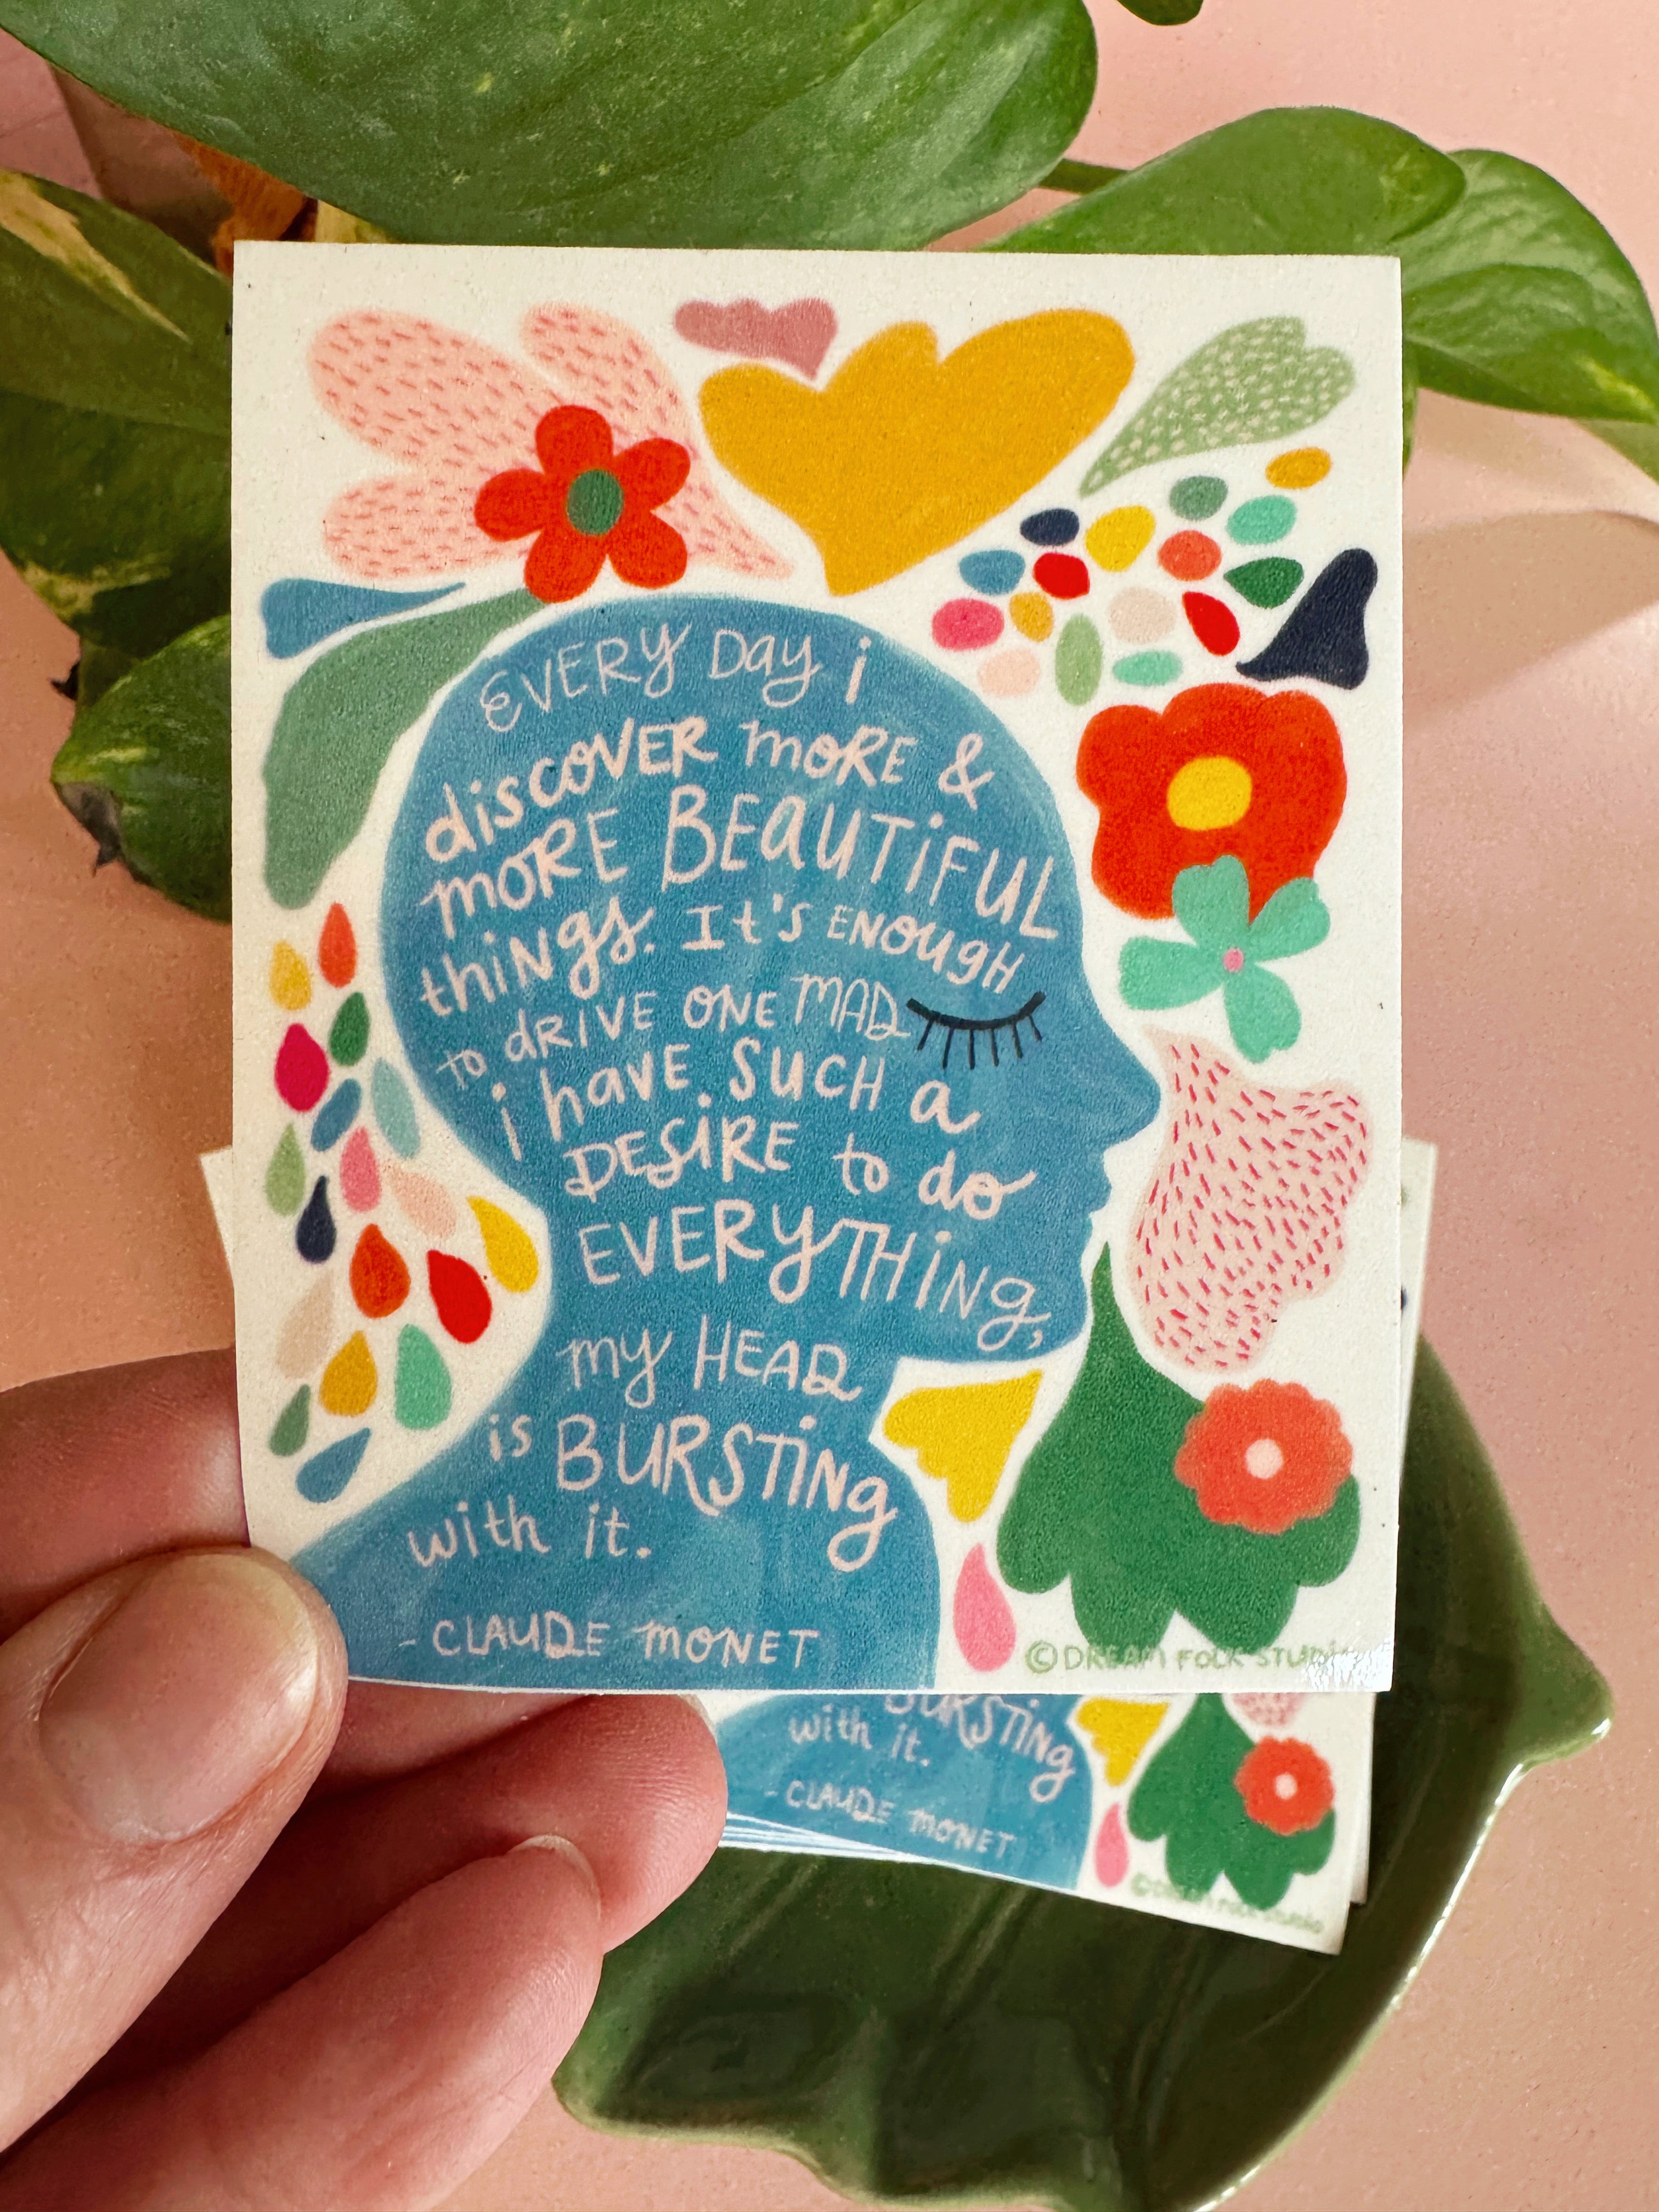 EVERY DAY i
discOVER MORE &
MORE BEAUTiFUL
thiNgs. It's ENOugH
to dRIVE ONE MAD
i haVE SUCH a
DESiRE to do
EVERyTHiNg,
my HEAD
is BURSTiNg
with it.
- CLAUDE MONET
© DREAM FOLK STUDiO
BURSTiNg
with it.
- CLAUDE MONET
© DREAM FOLK STUDiO